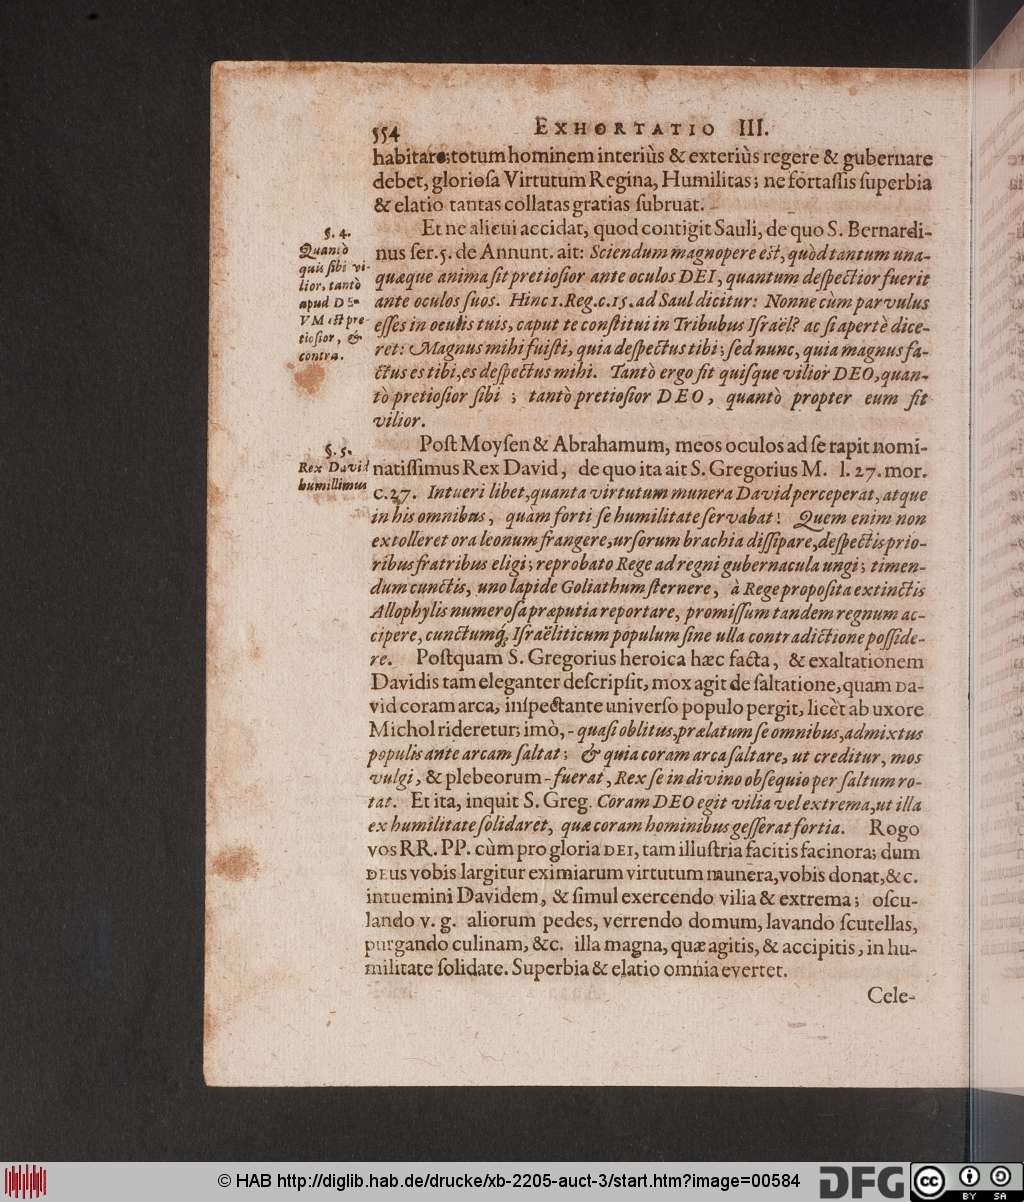 554 EXHORTATIO III.
habitare; totum hominem interiùs & exteriùs regere & gubernare
debet, gloriosa Virtutum Regina, Humilitas; ne fortassis superbia
& elatio tantas collatas gratias subruat.
§. 4.
Quantò
quis sibi vi-
lior, tantò
apud DE-
VM est pre-
tiosior, &
contra.
Et ne alicui accidat, quod contigit Sauli, de quo S. Bernardi-
nus ser. 5. de Annunt. ait: Sciendum magnopere est, quòd tantum una-
quæque anima sit pretiosior ante oculos DEI, quantum despectior fuerit
ante oculos suos. Hinc 1. Reg. c. 15. ad Saul dicitur: Nonne cùm parvulus
esses in oculis tuis, caput te constitui in Tribubus Israël? ac si apertè dice-
ret: Magnus mihi fuisti, quia despectus tibi; sed nunc, quia magnus fa-
ctus es tibi, es despectus mihi. Tantò ergo fit quisque vilior DEO, quan-
tò pretiosior sibi; tantò pretiosior DEO, quantò propter eum fit
vilior.
§. 5.
Rex David
humillimus
Post Moysen & Abrahamum, meos oculos ad se rapit nomi-
natissimus Rex David, de quo ita ait S. Gregorius M. l. 27. mor.
c. 27. Intueri libet, quanta virtutum munera David perceperat, atque
in his omnibus, quàm forti se humilitate servabat! Quem enim non
extolleret ora leonum frangere, ursorum brachia dissipare, despectis prio-
ribus fratribus eligi; reprobato Rege ad regni gubernacula ungi; timen-
dum cunctis, uno lapide Goliathum sternere, à Rege proposita extinctis
Allophylis numerosa præputia reportare, promissum tandem regnum ac-
cipere, cunctumq́; Israëliticum populum sine ulla contradictione posside-
re. Postquam S. Gregorius heroica hæc facta, & exaltationem
Davidis tam eleganter descripsit, mox agit de saltatione, quam Da-
vid coram arca, inspectante universo populo pergit, licèt ab uxore
Michol rideretur; imò, - quasi oblitus, prælatum se omnibus, admixtus
populis ante arcam saltat; & quia coram arca saltare, ut creditur, mos
vulgi, & plebeorum - fuerat, Rex se in divino obsequio per saltum ro-
tat. Et ita, inquit S. Greg. Coram DEO egit vilia vel extrema, ut illa
ex humilitate solidaret, quæ coram hominibus gesserat fortia. Rogo
vos RR. PP. cùm pro gloria DEI, tam illustria facitis facinora; dum
DEus vobis largitur eximiarum virtutum munera, vobis donat, &c.
intuemini Davidem, & simul exercendo vilia & extrema; oscu-
lando v. g. aliorum pedes, verrendo domum, lavando scutellas,
purgando culinam, &c. illa magna, quæ agitis, & accipitis, in hu-
militate solidate. Superbia & elatio omnia evertet.
Cele-
© HAB http://diglib.hab.de/drucke/xb-2205-auct-3/start.htm?image=00584
DFG
cc
BY SA